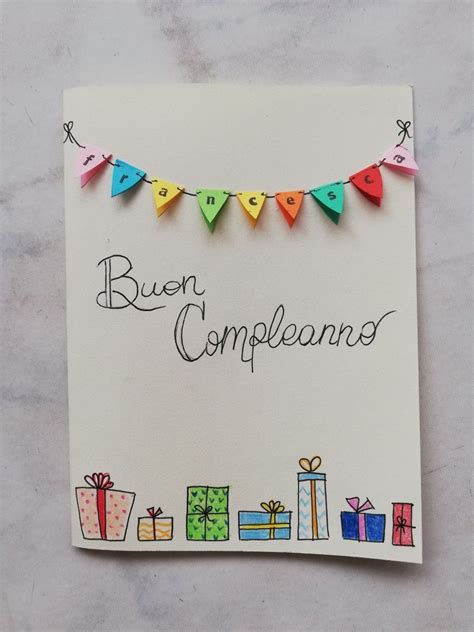 francesca
Buon
Compleanno